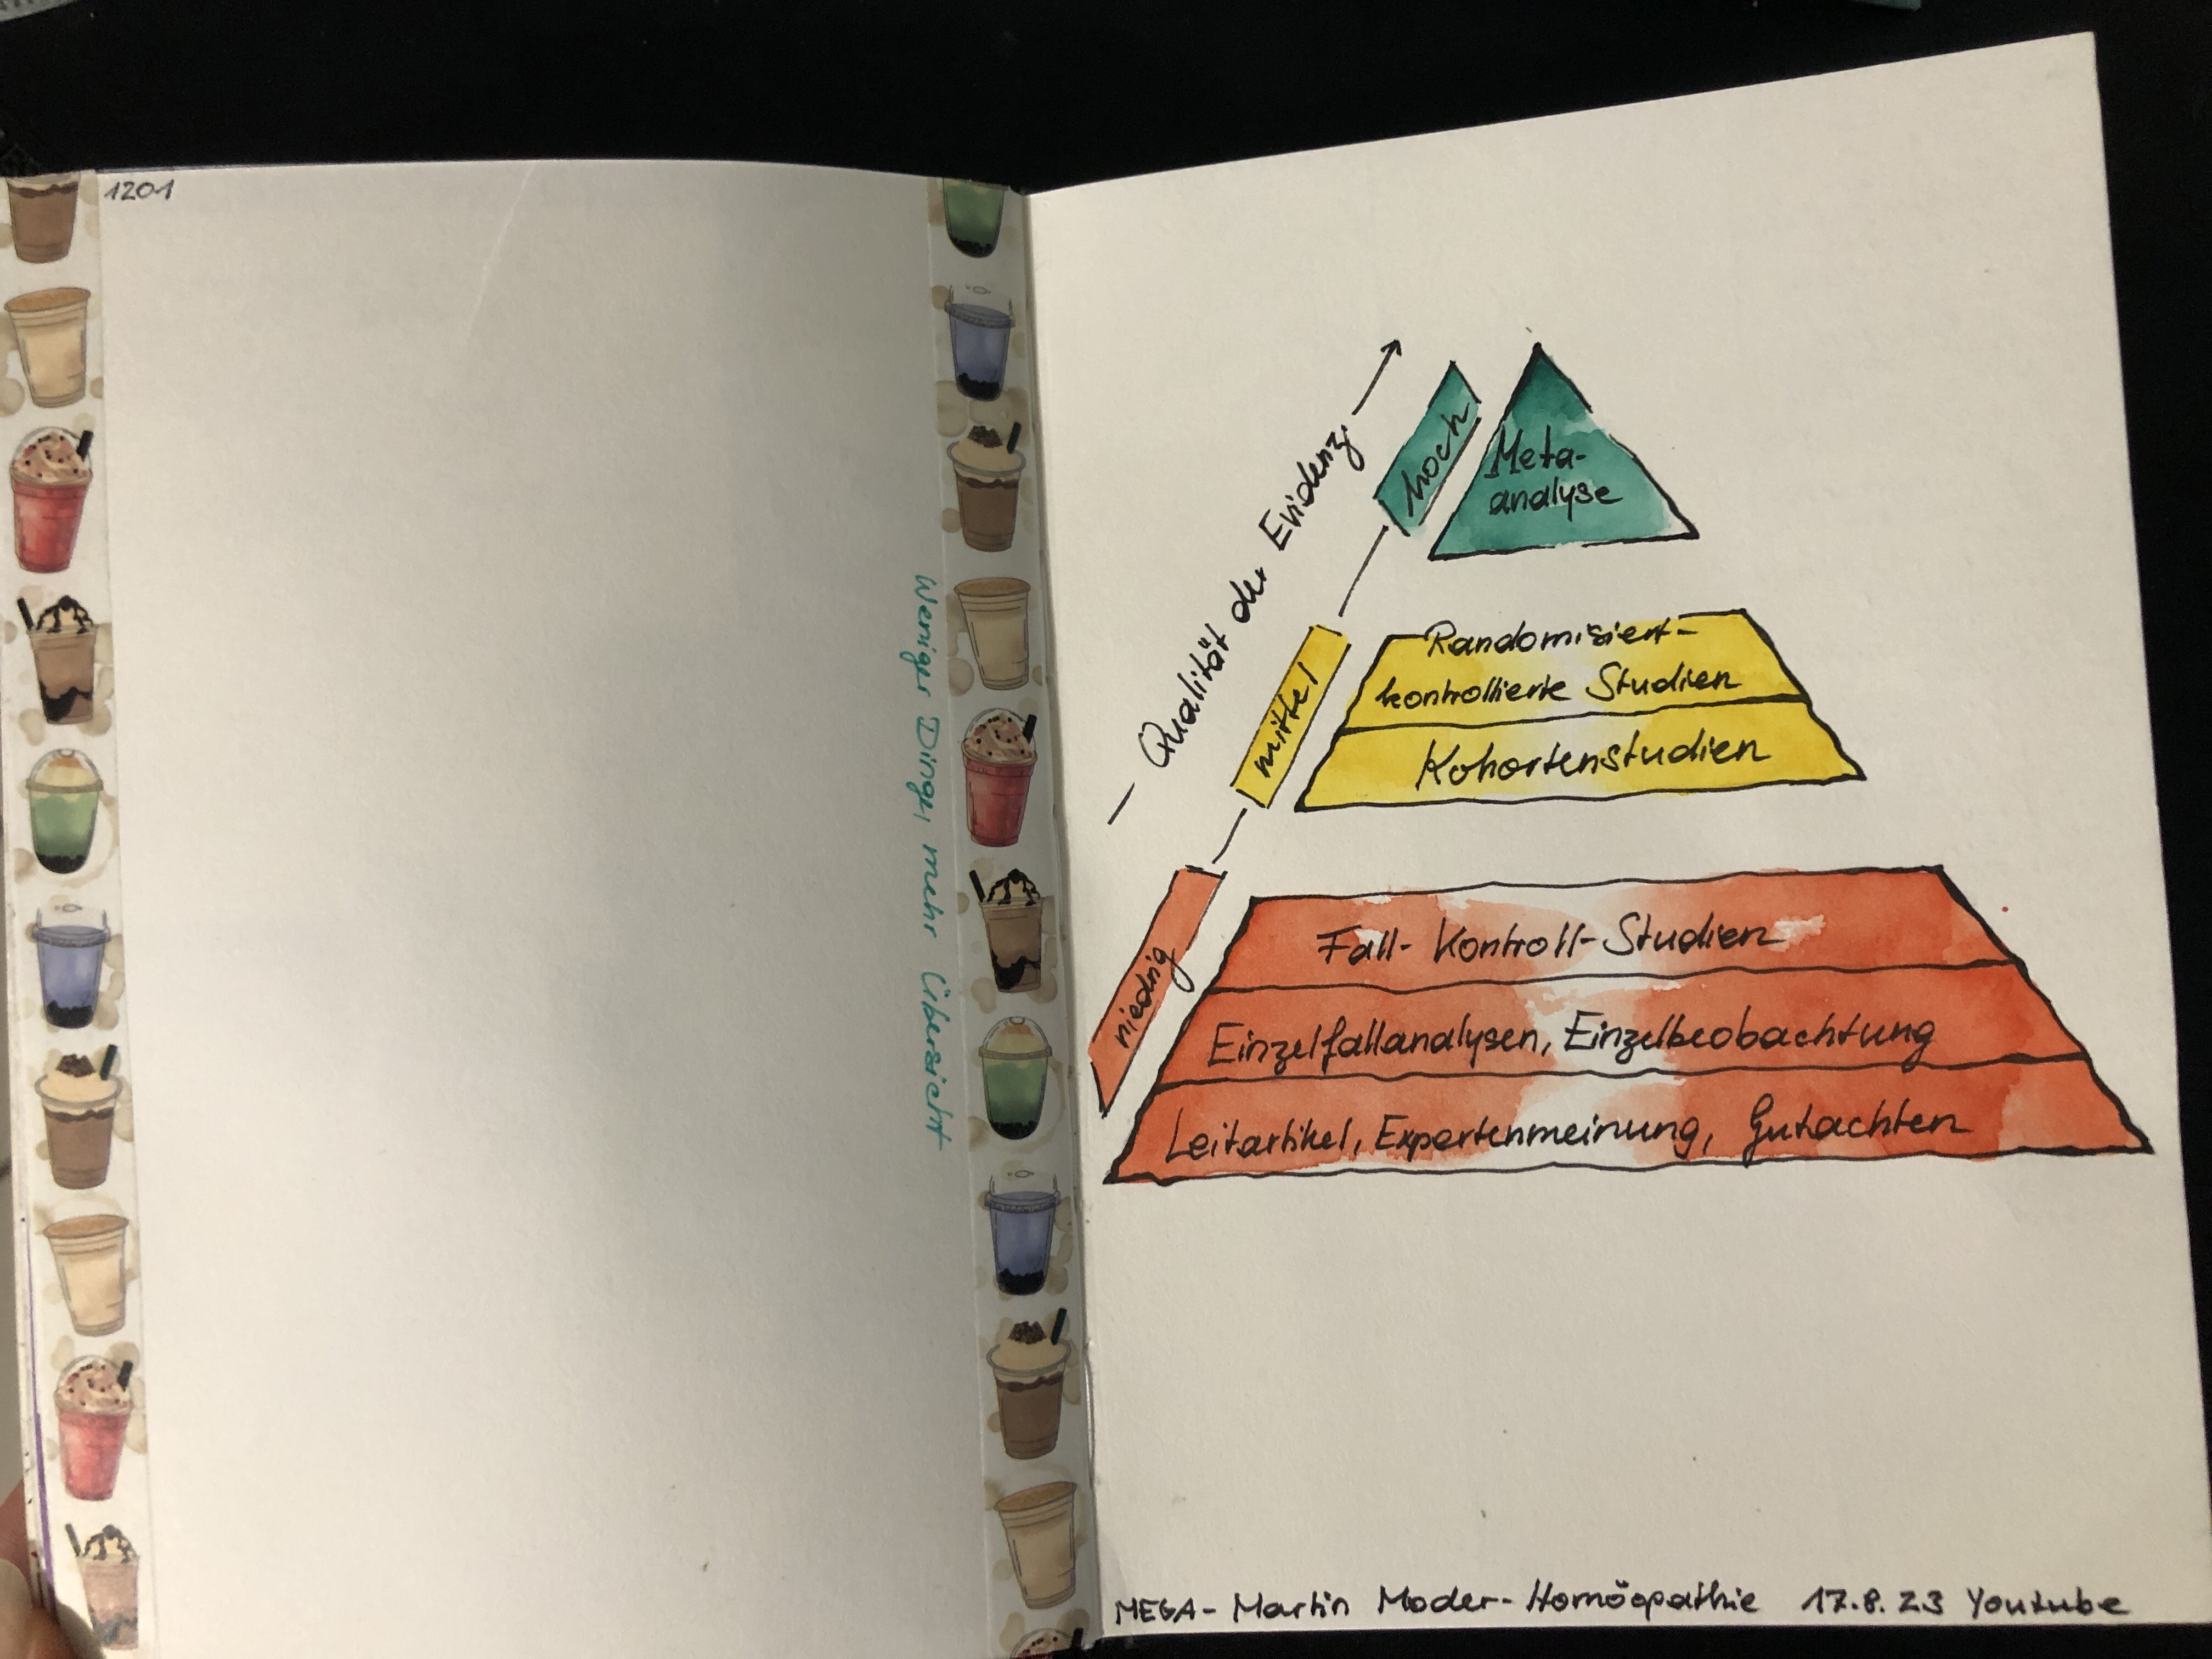 1201
Weniger Dinge, mehr Übersicht
Qualität der Evidenz
hoch
Meta-
analyse
mittel
Randomisiert-
kontrollierte Studien
Kohortenstudien
niedrig
Fall-Kontroll-Studien
Einzelfallanalysen, Einzelbeobachtung
Leitartikel, Expertenmeinung, Gutachten
MEGA- Martin Moder-Homöopathie 17.8.23 Youtube